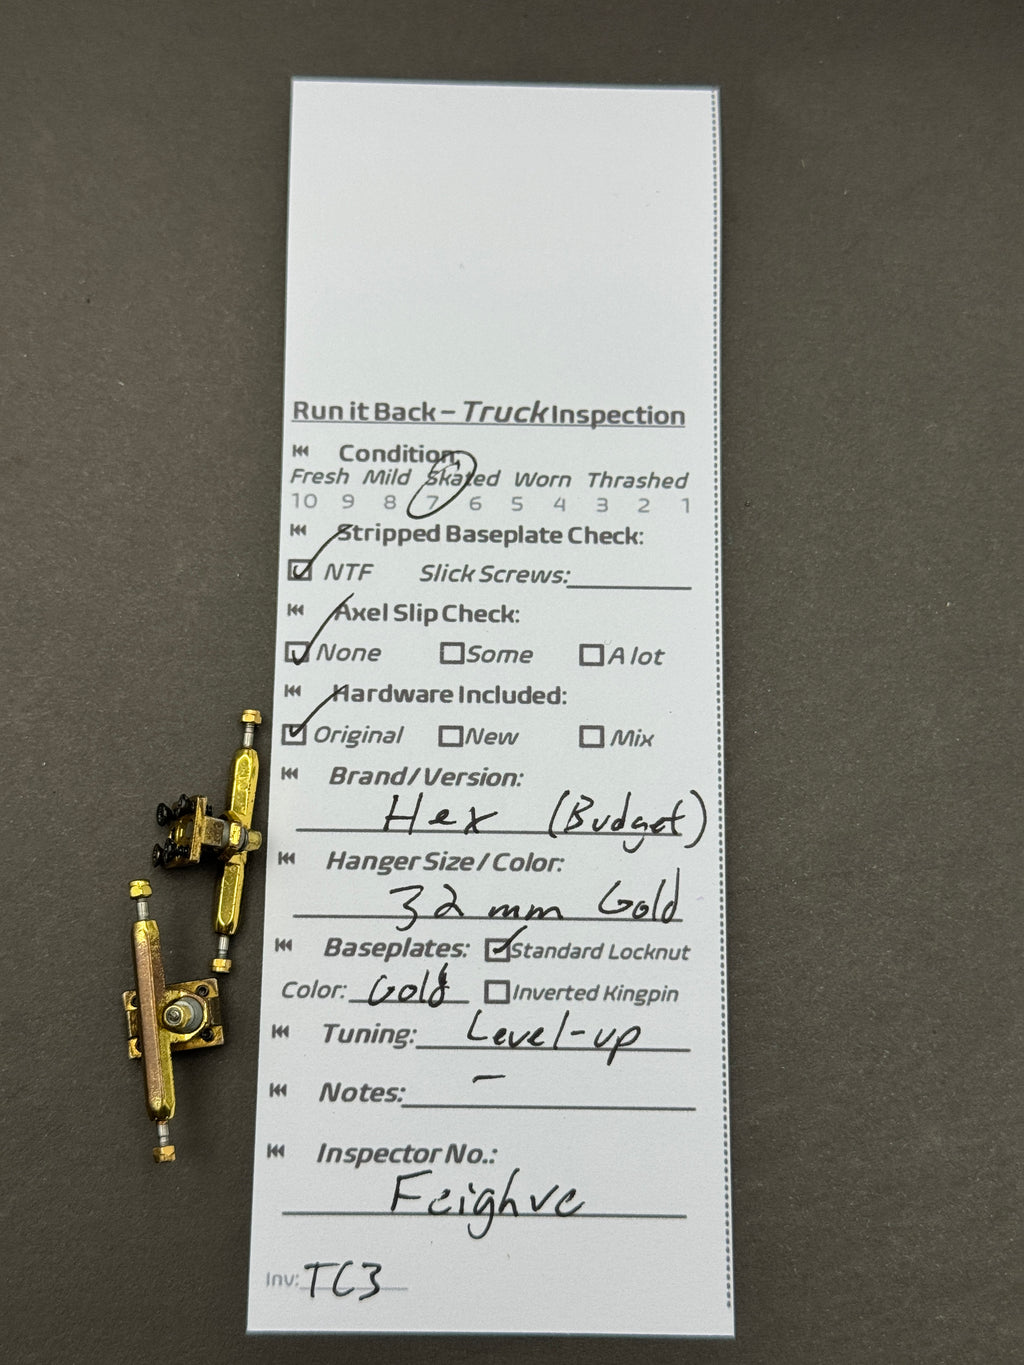 Run it Back – Truck Inspection
Condition
Fresh Mild Skated Worn Thrashed
10 9 8 7 6 5 4 3 2 1
Stripped Baseplate Check:
NTF Slick Screws:
Axel Slip Check:
None Some A lot
Hardware Included:
Original New Mix
Brand/Version:
Hex (Budget)
Hanger Size/Color:
32 mm Gold
Baseplates: Standard Locknut
Color: Gold Inverted Kingpin
Tuning: Level-up
Notes: –
Inspector No.:
Feighve
Inv: TC3